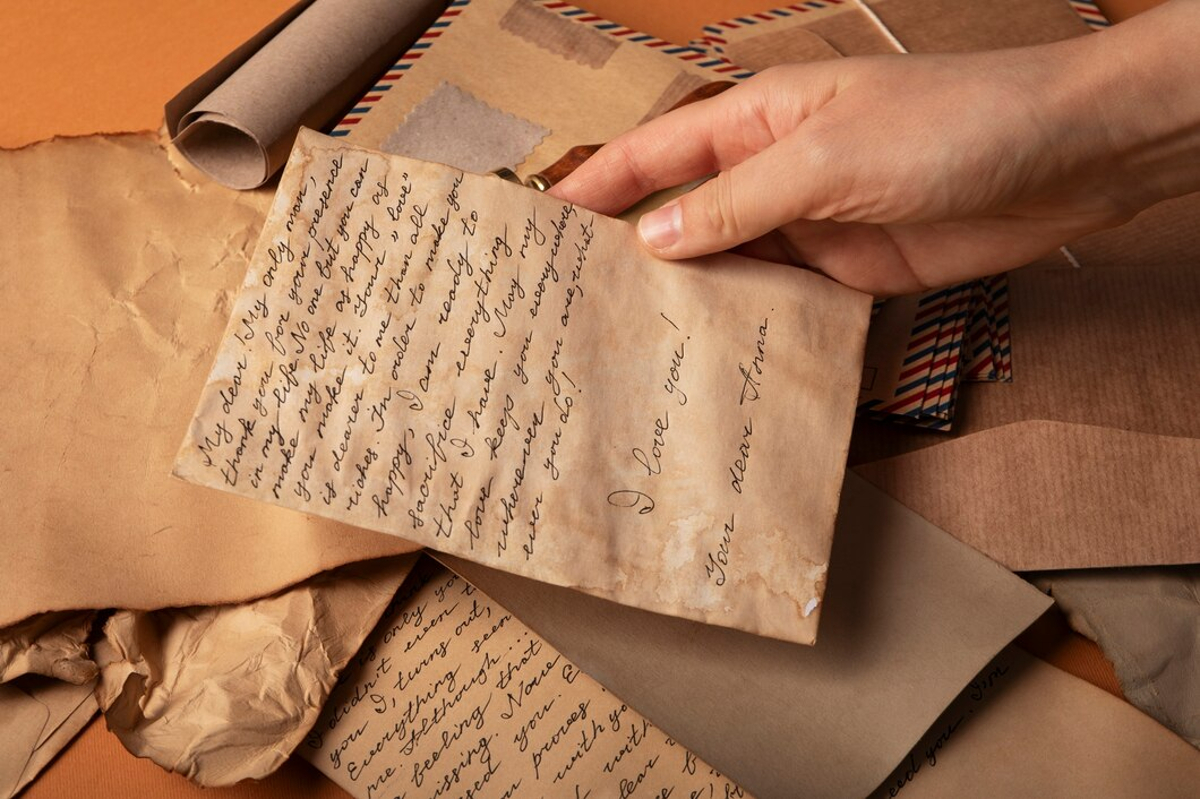 My dear! My only man,
thank you for your presence
in my life. No one but you can
make my life as happy as
you make it. Your „love”
is dearer to me than all
riches. In order to make you
happy, I am ready to
sacrifice everything
that I have. May my
love keeps you everywhere,
wherever you are, what
ever you do!
I love you!
Your dear Anna.
only yo
didn't even t
you I, turns out,
Everything seem
me. Although...
a beeling that
issing. Now E
sed you
proves
with yo
with
lear
eed you. I'm